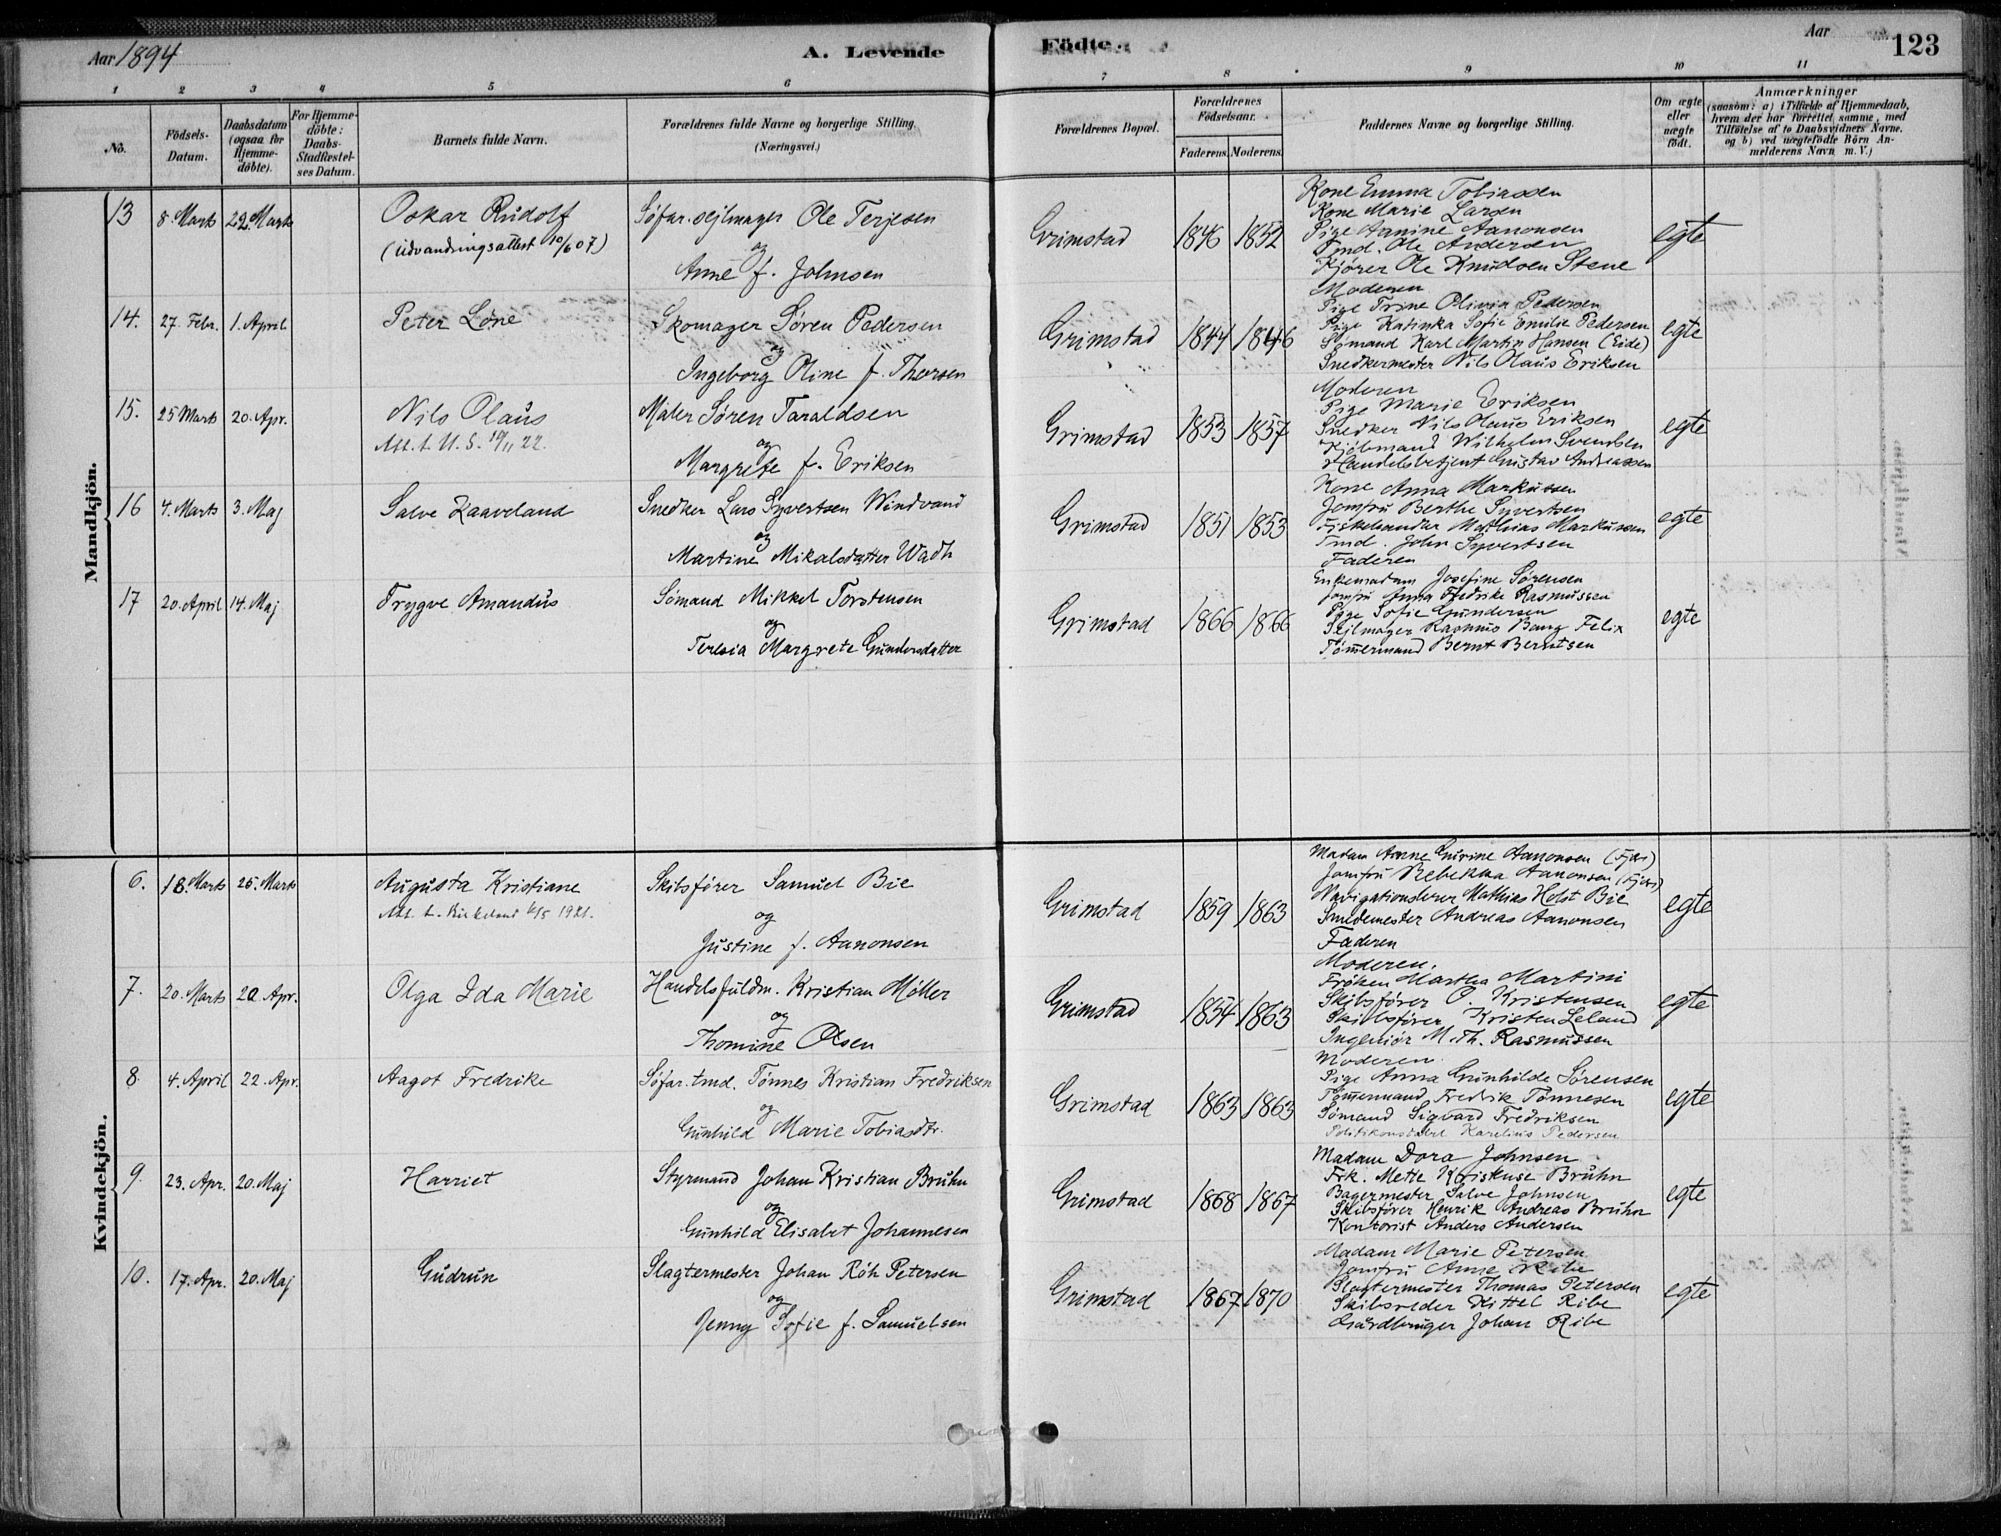 Aar 1894
A. Levende
Födte.
Aar
123
1 2 3 4 5 6 7 8 9 10 11
No.
Födsels-Datum.
Daabsdatum (ogsaa for Hjemme-döbte).
For Hjemme-döbte: Daabs-Stadfæstel-ses Datum.
Barnets fulde Navn.
Forældrenes fulde Navne og borgerlige Stilling.
(Næringsvei.)
Forældrenes Bopæl.
Forældrenes Födselsaar.
Faderens. Moderens.
Faddernes Navne og borgerlige Stilling.
Om ægte eller uægte födt.
Anmærkninger
(saasom: a) i Tilfælde af Hjemmedaab, hvem der har forrettet samme, med Tilföielse af to Daabsvidners Navne. og b) ved uægtefödte Börn An-melderens Navn m. V.)
Mandkjön.
13 8. Marts 22. Marts Oskar Rudolf
(Udvandringsattest 10/6 07)
Søfar. sejlmager Ole Terjesen
og
Anne f. Johnsen
Grimstad 1846 1852
Kone Emma Tobiassen
Kone Marie Larsen
Pige Aanine Aanonsen
Tmd. Ole Andersen
Kjører Ole Knudsen Stene
egte
14. 27. Febr. 1. April Peter Løne
Skomager Søren Pedersen
og
Ingeborg Oline f. Thorsen
Grimstad 1844 1846
Moderen
Pige Trine Olivia Pedersen
Pige Katinka Sofie Emilie Pedersen
Sømand Karl Martin Hansen (Eide)
Snedkermester Nils Olaus Eriksen
egte
15. 25 Marts 20. Apr. Nils Olaus
Att. t. U. S. 10/11 22.
Maler Søren Taraldsen
og
Margrete f. Eriksen
Grimstad 1853 1857
Moderen
Pige Marie Eriksen
Snedker Nils Olaus Eriksen
Kjøbmand Wilhelm Svendsen
Handelsbetjent Gustav Andreassen
egte
16 4. Marts 3. Maj Salve Raaveland
Snedker Lars Syvertsen Windvand
og
Martine Mikalsdatter
Grimstad 1851 1853
Kone Anna Markussen
Jomfru Berthe Syvertsen
Fiskehandler Mathias Markussen
Tmd. John Syvertsen
Faderen
egte
17 20. April 14. Maj Trygve Amandus
Sømand Mikkel Torstensen
og
Teresia Margrete Gundersdatter
Grimstad 1866 1866
Enkemadam Josefine Sørensen
Jomfru Anna Fredrike Rasmussen
Pige Sofie Gundersen
Sejlmager Rasmus Bang Felix
Tømmermand Bernt Berntsen
egte
Kvindekjön.
6. 18. Marts 25. Marts Augusta Kristiane
Att. t. Kirkeland 6/5 1921.
Skibsfører Samuel Bie
og
Justine f. Aanonsen
Grimstad 1859 1863
Madam Anne Gurine Aanonsen
Jomfru Rebekka Aanonsen
Navigationslærer Mathias Holst Bie
Smedemester Andreas Aanonsen
Faderen
egte
7. 20. Marts 20 Apr. Olga Ida Marie
Handelsfuldm. Kristian Møller
og
Thomine Olsen
Grimstad 1854 1863
Moderen.
Frøken Martha Martini
Skibsfører O. Kristensen
Skibsfører Kristen Leland
Ingeniør M. Th. Rasmussen
egte
8. 4. April 22. Apr. Aagot Fredrike
Søfar. tmd. Tønnes Kristian Fredriksen
og
Gunhild Marie Tobiasdtr.
Grimstad 1863 1863
Moderen.
Pige Anna Gunhilde Sørensen
Tømmermand Fredrik Tønnesen
Sømand Sigvard Fredriksen
Politikonstabel Karelius Pedersen
egte
9. 23. Apr. 20. Maj Harriet
Styrmand Johan Kristian Bruhn
og
Gunhild Elisabet Johannesen
Grimstad 1868 1867
Madam Dora Johnsen
Frk. Mette Bruhn
Bagermester Salve Johnsen
Skibsfører Henrik Andreas Bruhn
Kontorist Anders Andersen
egte
10. 17. Apr. 20. Maj Gudrun
Slagtermester Johan Röh Petersen
og
Jenny Sofie f. Samuelsen
Grimstad 1867 1870
Madam Marie Petersen
Jomfru Anne Ribe
Slagtermester Thomas Petersen
Skibsreder Kittel Ribe
Gårdbruger Johan Ribe
egte